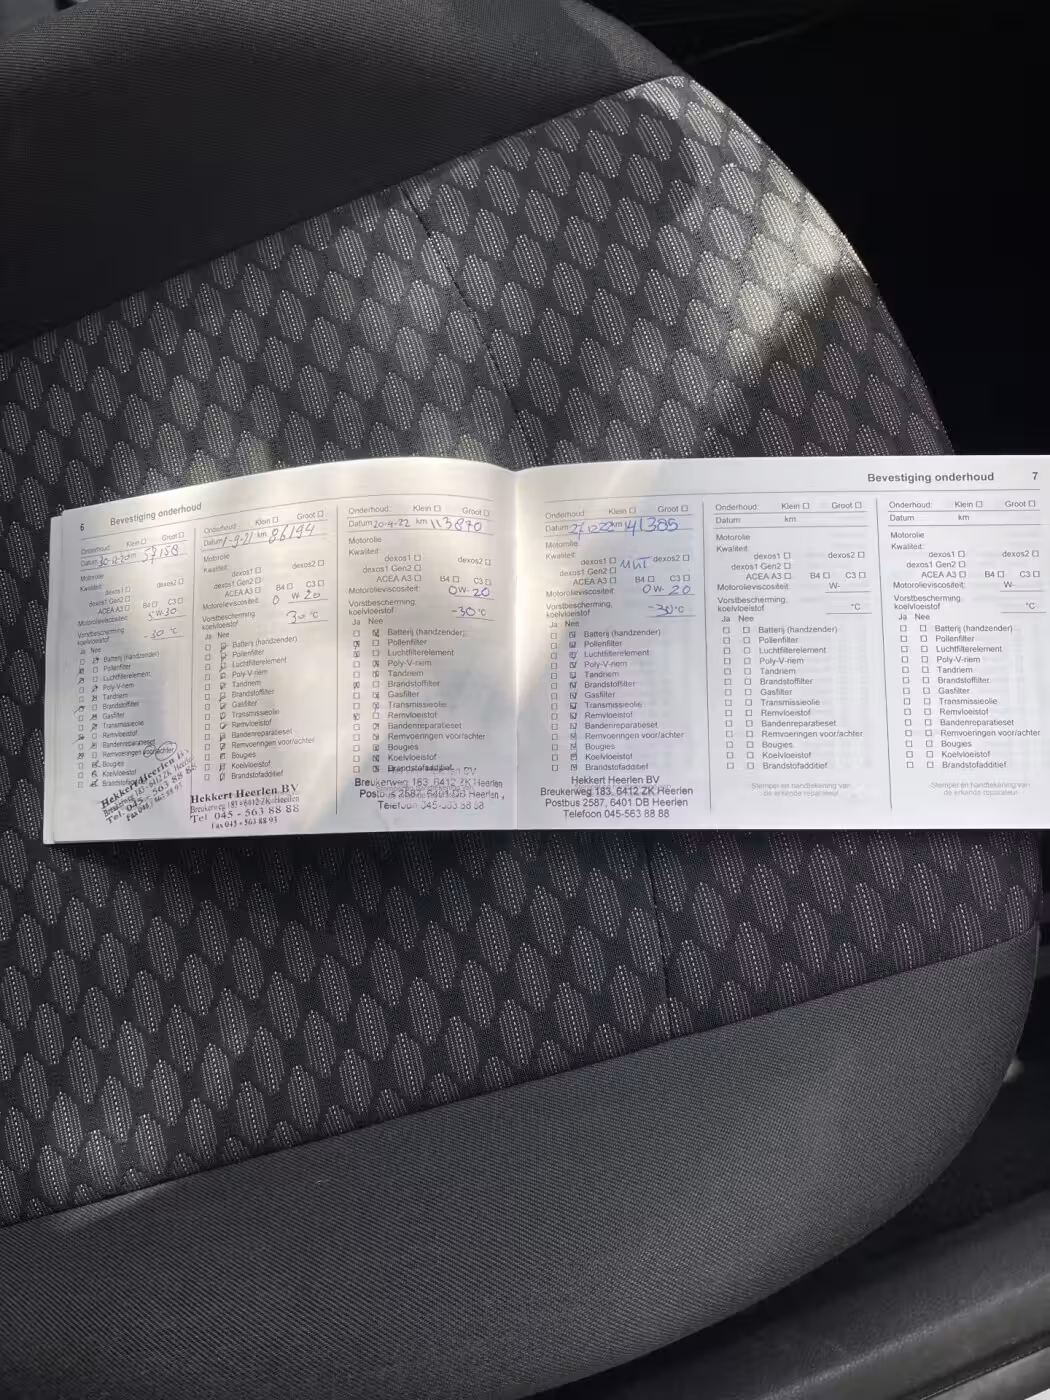 6 Bevestiging onderhoud
Onderhoud: Klein Groot
Datum 30-12-20 km 57158
Motorolie
Kwaliteit:
dexos1 dexos2
dexos1 Gen2
ACEA A3 B4 C3
Motorolieviscositeit: 5 W-30
Vorstbescherming,
koelvloeistof -30 °C
Ja Nee
Batterij (handzender)
Pollenfilter
Luchtfilterelement
Poly-V-riem
Tandriem
Brandstoffilter
Gasfilter
Transmissieolie
Remvloeistof
Bandenreparatieset
Remvoeringen voor/achter
Bougies
Koelvloeistof
Hekkert Heerlen B.V.
Onderhoud: Klein Groot
Datum 1-9-21 km 86194
Motorolie
Kwaliteit:
dexos1 dexos2
dexos1 Gen2
ACEA A3 B4 C3
Motorolieviscositeit: 0 W-20
Vorstbescherming,
koelvloeistof 30 °C
Ja Nee
Batterij (handzender)
Pollenfilter
Luchtfilterelement
Poly-V-riem
Tandriem
Brandstoffilter
Gasfilter
Transmissieolie
Remvloeistof
Bandenreparatieset
Remvoeringen voor/achter
Bougies
Koelvloeistof
Brandstofadditief
Hekkert Heerlen BV
Breukerweg 183 - 6412 ZK Heerlen
Tel 045 - 563 88 88
Fax 045 - 563 88 93
Onderhoud: Klein Groot
Datum 20-4-22 km 113870
Motorolie
Kwaliteit:
dexos1 dexos2
dexos1 Gen2
ACEA A3 B4 C3
Motorolieviscositeit: 0W-20
Vorstbescherming,
koelvloeistof -30 °C
Ja Nee
Batterij (handzender)
Pollenfilter
Luchtfilterelement
Poly-V-riem
Tandriem
Brandstoffilter
Gasfilter
Transmissieolie
Remvloeistof
Bandenreparatieset
Remvoeringen voor/achter
Bougies
Koelvloeistof
Brandstofadditief
Breukerweg 183, 6412 ZK Heerlen
Postbus 2587, 6401 DB Heerlen
Telefoon 045-563 88 88
Bevestiging onderhoud 7
Onderhoud: Klein Groot
Datum 27-12-22 km 141385
Motorolie
Kwaliteit:
dexos1 dexos2
dexos1 Gen2
ACEA A3 B4 C3
Motorolieviscositeit: 0W-20
Vorstbescherming,
koelvloeistof -30 °C
Ja Nee
Batterij (handzender)
Pollenfilter
Luchtfilterelement
Poly-V-riem
Tandriem
Brandstoffilter
Gasfilter
Transmissieolie
Remvloeistof
Bandenreparatieset
Remvoeringen voor/achter
Bougies
Koelvloeistof
Brandstofadditief
Hekkert Heerlen BV
Breukerweg 183, 6412 ZK Heerlen
Postbus 2587, 6401 DB Heerlen
Telefoon 045-563 88 88
Onderhoud: Klein Groot
Datum km
Motorolie
Kwaliteit:
dexos1 dexos2
dexos1 Gen2
ACEA A3 B4 C3
Motorolieviscositeit: W-
Vorstbescherming,
koelvloeistof °C
Ja Nee
Batterij (handzender)
Pollenfilter
Luchtfilterelement
Poly-V-riem
Tandriem
Brandstoffilter
Gasfilter
Transmissieolie
Remvloeistof
Bandenreparatieset
Remvoeringen voor/achter
Bougies
Koelvloeistof
Brandstofadditief
Stempel en handtekening van
de erkende reparateur
Onderhoud: Klein Groot
Datum km
Motorolie
Kwaliteit:
dexos1 dexos2
dexos1 Gen2
ACEA A3 B4 C3
Motorolieviscositeit: W-
Vorstbescherming,
koelvloeistof °C
Ja Nee
Batterij (handzender)
Pollenfilter
Luchtfilterelement
Poly-V-riem
Tandriem
Brandstoffilter
Gasfilter
Transmissieolie
Remvloeistof
Bandenreparatieset
Remvoeringen voor/achter
Bougies
Koelvloeistof
Brandstofadditief
Stempel en handtekening van
de erkende reparateur